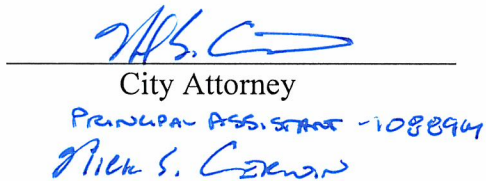 City Attorney
PRINCIPAL ASSISTANT - 108894
Nick S. Cerwin